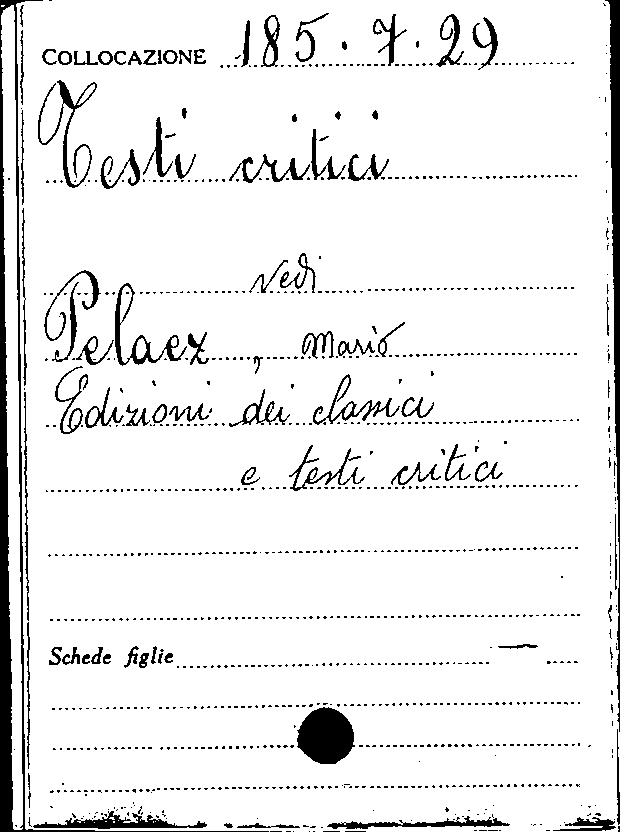 COLLOCAZIONE 185.7.29
Testi critici
Vedi
Pelaez, Mario
Edizioni dei classici
e testi critici
Schede figlie —